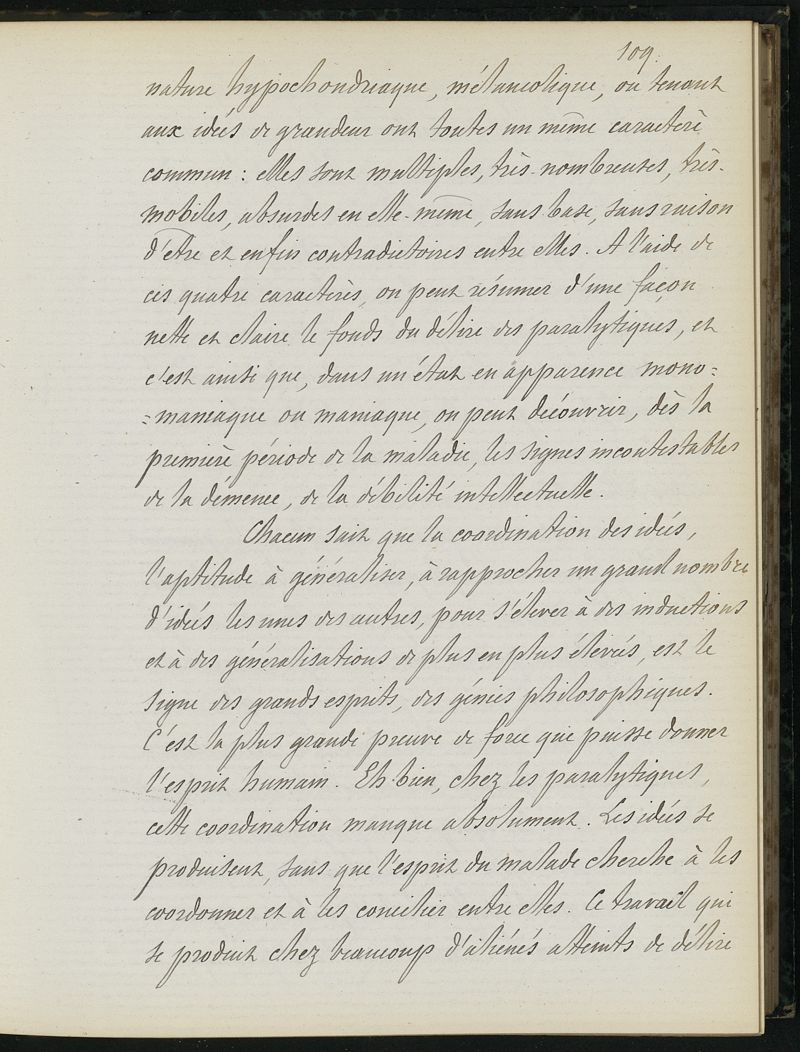 109.
nature hypochondriaque, mélancolique, ou tenant
aux idées de grandeur ont toutes un même caractère
commun : elles sont multiples, très-nombreuses, très-
mobiles, absurdes en elle-même, sans base, sans raison
d'être et enfin contradictoires entre elles. A l'aide de
ces quatre caractères, on peut résumer d'une façon
nette et claire le fonds du délire des paralytiques, et
c'est ainsi que, dans un état en apparence mono=
=maniaque ou maniaque, on peut découvrir, dès la
première période de la maladie, les signes incontestables
de la démence, de la débilité intellectuelle.
Chacun sait que la coordination des idées,
l'aptitude à généraliser, à rapprocher un grand nombre
d'idées les unes des autres, pour s'élever à des inductions
et à des généralisations de plus en plus élevées, est le
signe des grands esprits, des génies philosophiques.
C'est la plus grande preuve de force que puisse donner
l'esprit humain. Eh bien, chez les paralytiques,
cette coordination manque absolument. Les idées se
produisent, sans que l'esprit du malade cherche à les
coordonner et à les concilier entre elles. Ce travail qui
se produit chez beaucoup d'aliénés atteints de délire